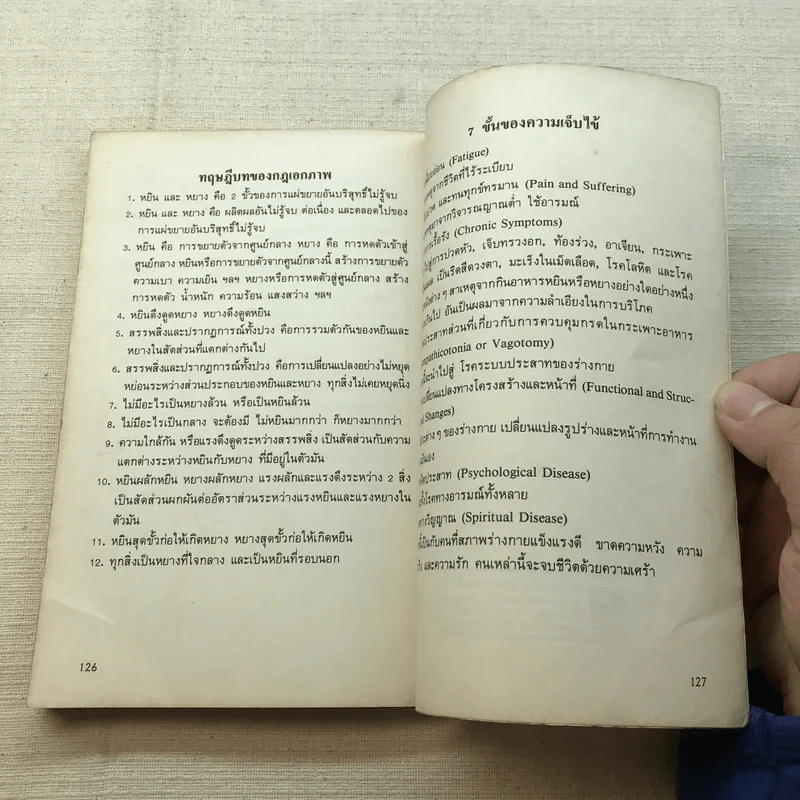 ทฤษฎีบทของกฎเอกภาพ
1. หยิน และ หยาง คือ 2 ขั้วของการแผ่ขยายอันบริสุทธิ์ไม่รู้จบ
2. หยิน และ หยาง คือ ผลิตผลอันไม่รู้จบ ต่อเนื่อง และตลอดไปของ
การแผ่ขยายอันบริสุทธิ์ไม่รู้จบ
3. หยิน คือ การขยายตัวจากศูนย์กลาง หยาง คือ การหดตัวเข้าสู่
ศูนย์กลาง หยินหรือการขยายตัวจากศูนย์กลางนี้ สร้างการขยายตัว
ความเบา ความเย็น ฯลฯ หยางหรือการหดตัวสู่ศูนย์กลาง สร้าง
การหดตัว น้ำหนัก ความร้อน แสงสว่าง ฯลฯ
4. หยินดึงดูดหยาง หยางดึงดูดหยิน
5. สรรพสิ่งและปรากฏการณ์ทั้งปวง คือการรวมตัวกันของหยินและ
หยางในสัดส่วนที่แตกต่างกันไป
6. สรรพสิ่งและปรากฏการณ์ทั้งปวง คือการเปลี่ยนแปลงอย่างไม่หยุด
หย่อนระหว่างส่วนประกอบของหยินและหยาง ทุกสิ่งไม่เคยหยุดนิ่ง
7. ไม่มีอะไรเป็นหยางล้วน หรือเป็นหยินล้วน
8. ไม่มีอะไรเป็นกลาง จะต้องมี ไม่หยินมากกว่า ก็หยางมากกว่า
9. ความใกล้กัน หรือแรงดึงดูดระหว่างสรรพสิ่ง เป็นสัดส่วนกับความ
แตกต่างระหว่างหยินกับหยาง ที่มีอยู่ในตัวมัน
10. หยินผลักหยิน หยางผลักหยาง แรงผลักและแรงดึงระหว่าง 2 สิ่ง
เป็นสัดส่วนผกผันต่ออัตราส่วนระหว่างแรงหยินและแรงหยางใน
ตัวมัน
11. หยินสุดขั้วก่อให้เกิดหยาง หยางสุดขั้วก่อให้เกิดหยิน
12. ทุกสิ่งเป็นหยางที่ใจกลาง และเป็นหยินที่รอบนอก
126
7 ขั้นของความเจ็บไข้
(Fatigue)
จากชีวิตที่ไร้ระเบียบ
และทนทุกข์ทรมาน (Pain and Suffering)
มาจากวิจารณญาณต่ำ ใช้อารมณ์
เรื้อรัง (Chronic Symptoms)
สู่การปวดหัว, เจ็บทรวงอก, ท้องร่วง, อาเจียน, กระเพาะ
เป็นริดสีดวงตา, มะเร็งในเม็ดเลือด, โรคโลหิต และโรค
ต่าง ๆ สาเหตุจากกินอาหารหยินหรือหยางอย่างใดอย่างหนึ่ง
เกินไป อันเป็นผลมาจากความลำเอียงในการบริโภค
ประสาทส่วนที่เกี่ยวกับการควบคุมกรดในกระเพาะอาหาร
or Vagotomy)
จะนำไปสู่ โรคระบบประสาทของร่างกาย
เปลี่ยนแปลงทางโครงสร้างและหน้าที่ (Functional and Struc-
Shanges)
ต่าง ๆ ของร่างกาย เปลี่ยนแปลงรูปร่างและหน้าที่การทำงาน
ประสาท (Psychological Disease)
โรคทางอารมณ์ทั้งหลาย
ทางวิญญาณ (Spiritual Disease)
เป็นกับคนที่สภาพร่างกายแข็งแรงดี ขาดความหวัง ความ
และความรัก คนเหล่านี้จะจบชีวิตด้วยความเศร้า
127